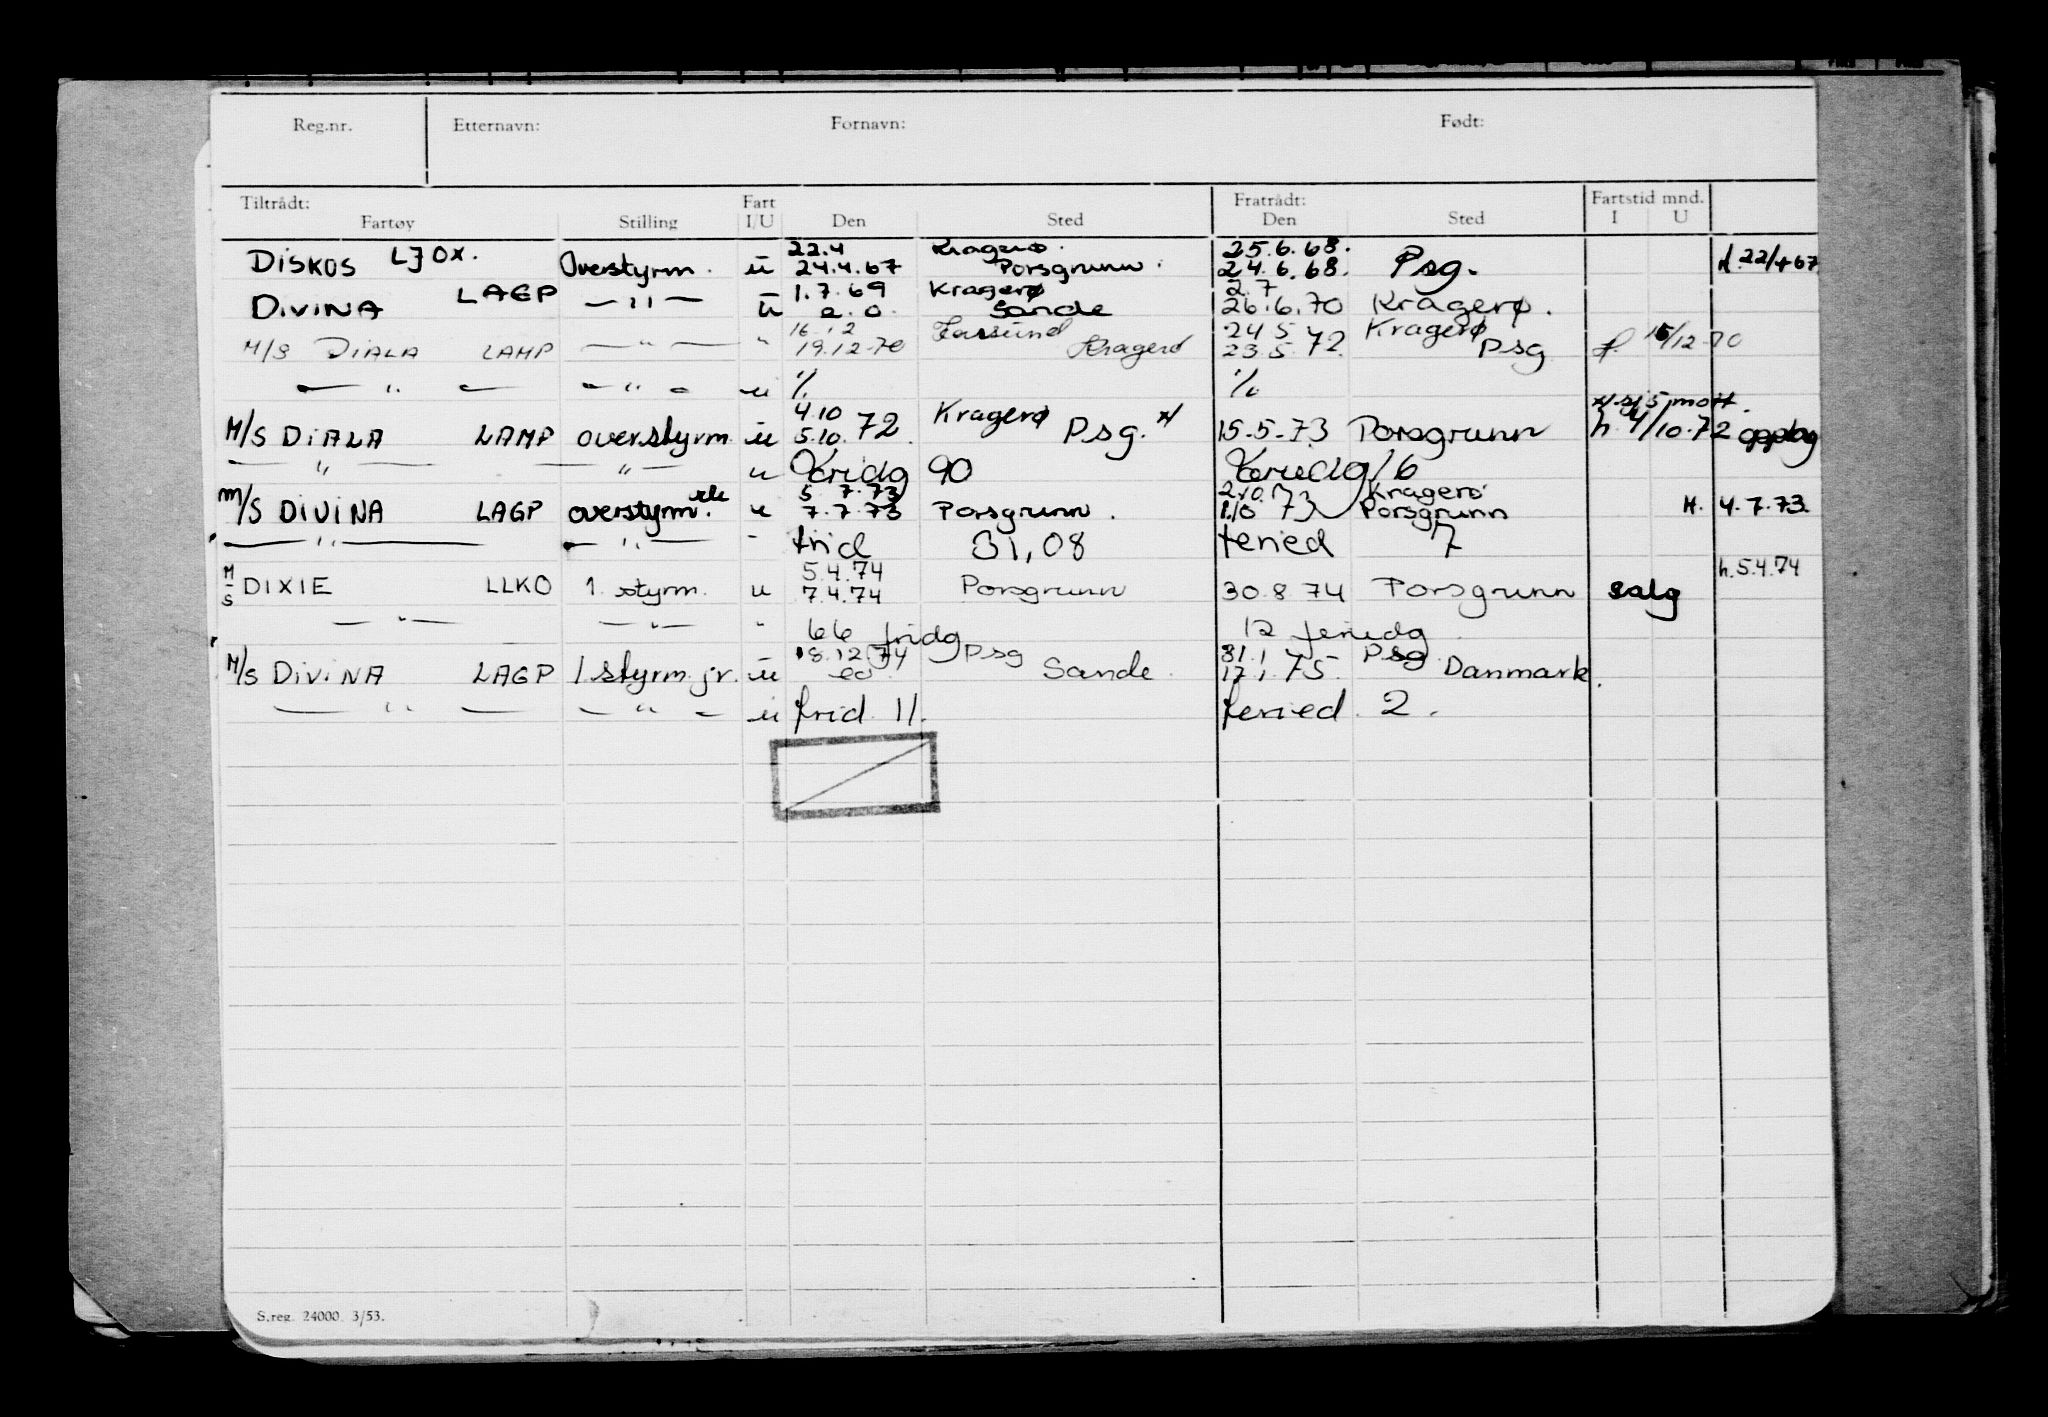 Reg.nr. Etternavn: Fornavn: Født:
Tiltrådt: Fart Fratrådt: Fartstid mnd.
Fartøy Stilling I/U Den Sted Den Sted I U
22.4 Kragerø. 25.6.68.
DISKOS LJOX. Overstyrm. u 24.4.67 Porsgrunn. 24.6.68. Psg. 22/4 67
LAGP 1.7.69 Kragerø 2.7
DIVINA — " — u a.o. Sande 26.6.70 Kragerø.
16.12 24.5 Kragerø
M/S DIALA LAMP — " — " 19.12.70 Kragerø 23.5.72 Psg f. 15/12-70
— " — — " — u % %
4.10 Kragerø
M/S DIALA LAMP overstyrm. u 5.10.72. Psg. x/ 15.5.73 Porsgrunn h. 4/10.72 opplag
— " — — " — u fridg 90 feriedg 16
5.7.73 2.10. Kragerø
M/S DIVINA LAGP overstyrm. u 7.7.73 Porsgrunn. 1.10 73 Porsgrunn H. 4.7.73
— " — — " — " frid 31,08 feried 7
5.4.74 h.5.4.74
M/S DIXIE LLKO 1. styrm. u 7.4.74 Porsgrunn 30.8.74 Porsgrunn salg
— " — — " — " 66 fridg 12 feriedg
18.12.74 Psg 31.1 Psg
M/S DIVINA LAGP 1.styrm.jr. u eo Sande. 17.1.75. Danmark.
— " — — " — u frid. 11. feried. 2.
S.reg. 24000. 3/53.